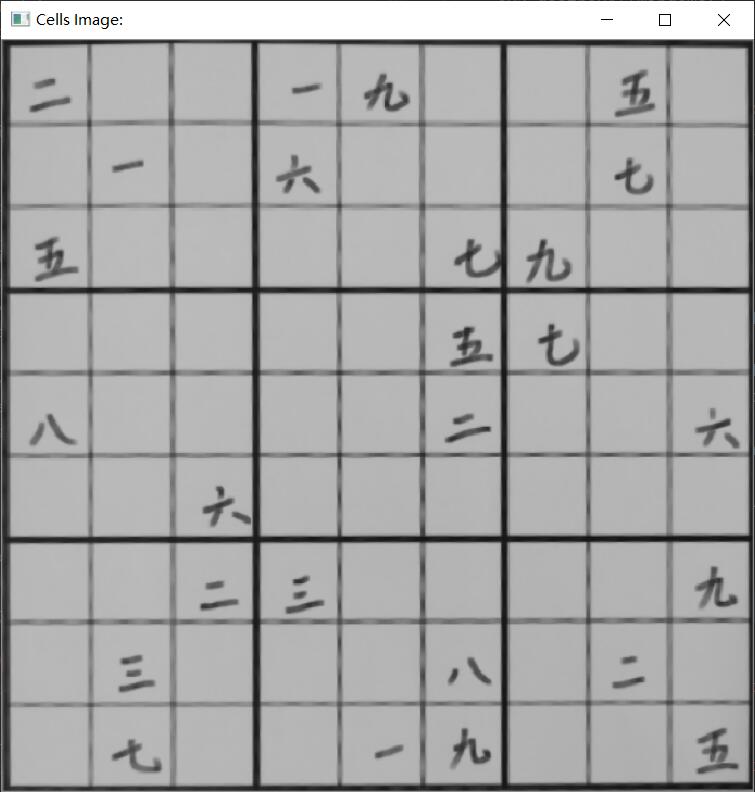 Cells Image:
二 一 九 五
一 六 七
五 七 九
五 七
八 二 六
六
二 三 九
三 八 二
七 一 九 五